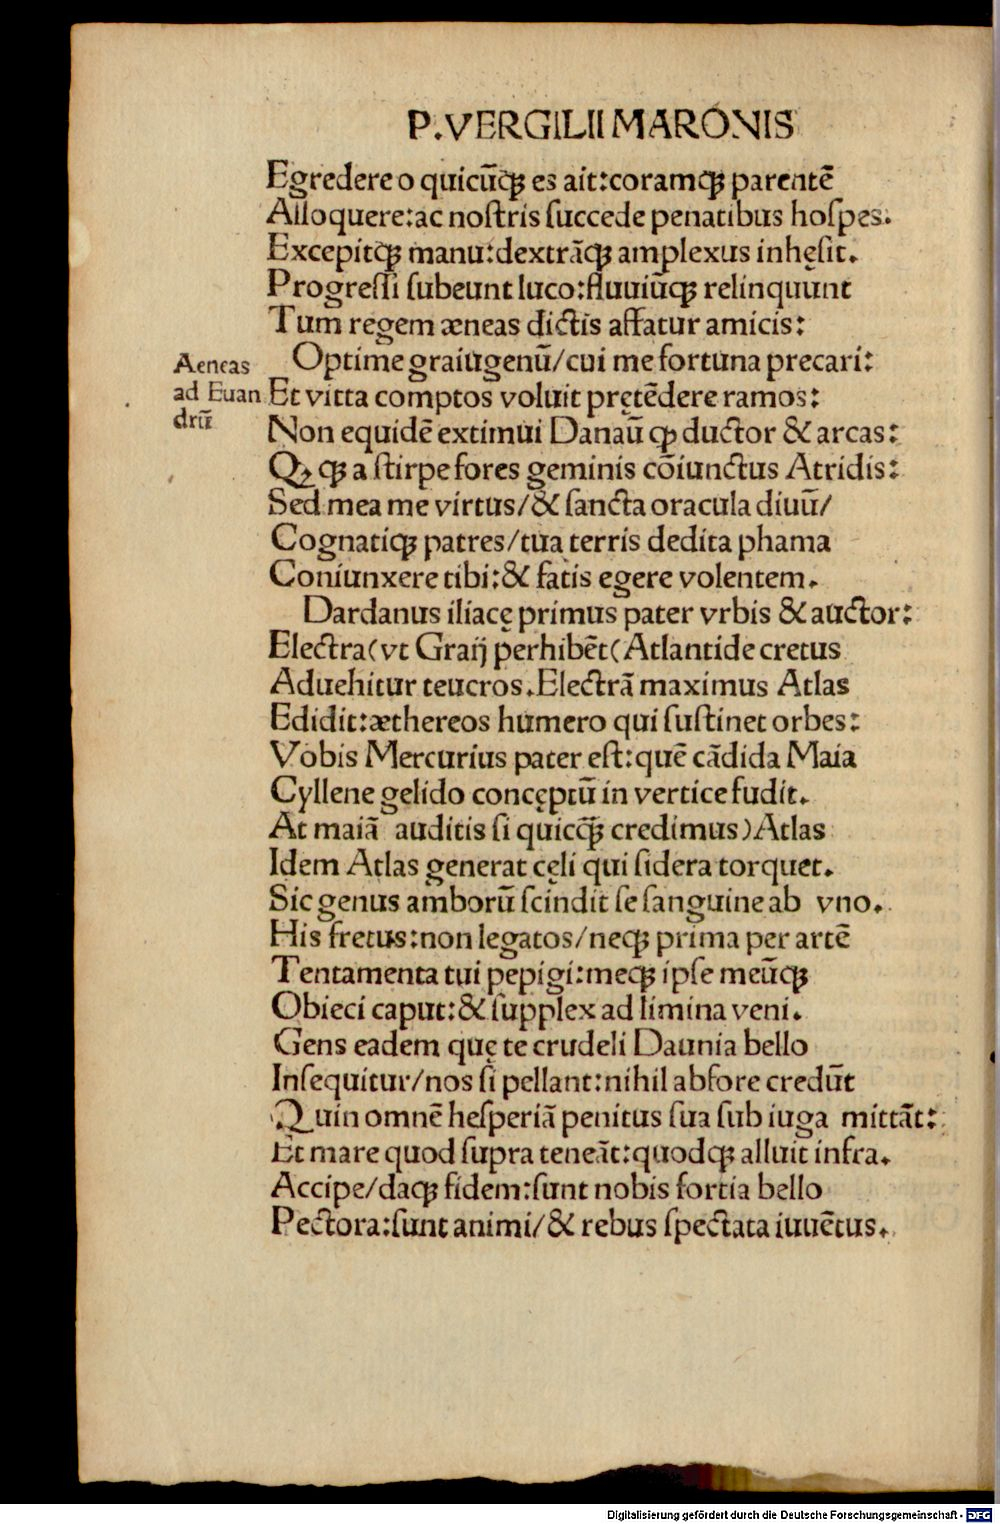 P. VERGILII MARONIS
Egredere o quicūqꝫ es ait: coramqꝫ parentē
Alloquere: ac noſtris ſuccede penatibus hoſpes.
Excepitqꝫ manu: dextrāqꝫ amplexus inhęſit.
Progreſſi ſubeunt luco: fluuiūqꝫ relinquunt
Tum regem æneas dictis affatur amicis:
Aeneas
ad Euan
drū
Optime graiugenū/cui me fortuna precari:
Et vitta comptos voluit pretēdere ramos:
Non equidē extimui Danaū ꝙ ductor & arcas:
Qꝫ qꝫ a ſtirpe fores geminis cōiunctus Atridis:
Sed mea me virtus/& ſancta oracula diuū/
Cognatiqꝫ patres/tua terris dedita phama
Coniunxere tibi: & fatis egere volentem.
Dardanus iliacę primus pater vrbis & auctor:
Electra (vt Graij perhibēt( Atlantide cretus
Aduehitur teucros. Electrā maximus Atlas
Edidit: æthereos humero qui ſuſtinet orbes:
Vobis Mercurius pater eſt: quē cādida Maia
Cyllene gelido concęptū in vertice fudit.
At maiā auditis ſi quicqꝫ̄ credimus) Atlas
Idem Atlas generat cęli qui ſidera torquet.
Sic genus amborū ſcindit ſe ſanguine ab vno.
His fretus: non legatos/neqꝫ prima per artē
Tentamenta tui pepigi: meqꝫ ipſe meūqꝫ
Obieci caput: & ſupplex ad limina veni.
Gens eadem quę te crudeli Daunia bello
Inſequitur/nos ſi pellant: nihil abfore credūt
Quin omnē heſperiā penitus ſua ſub iuga mittāt:
Et mare quod ſupra teneāt: quodqꝫ alluit infra.
Accipe/daqꝫ fidem: ſunt nobis fortia bello
Pectora: ſunt animi/& rebus ſpectata iuuētus.
Digitalisierung gefördert durch die Deutsche Forschungsgemeinschaft - DFG